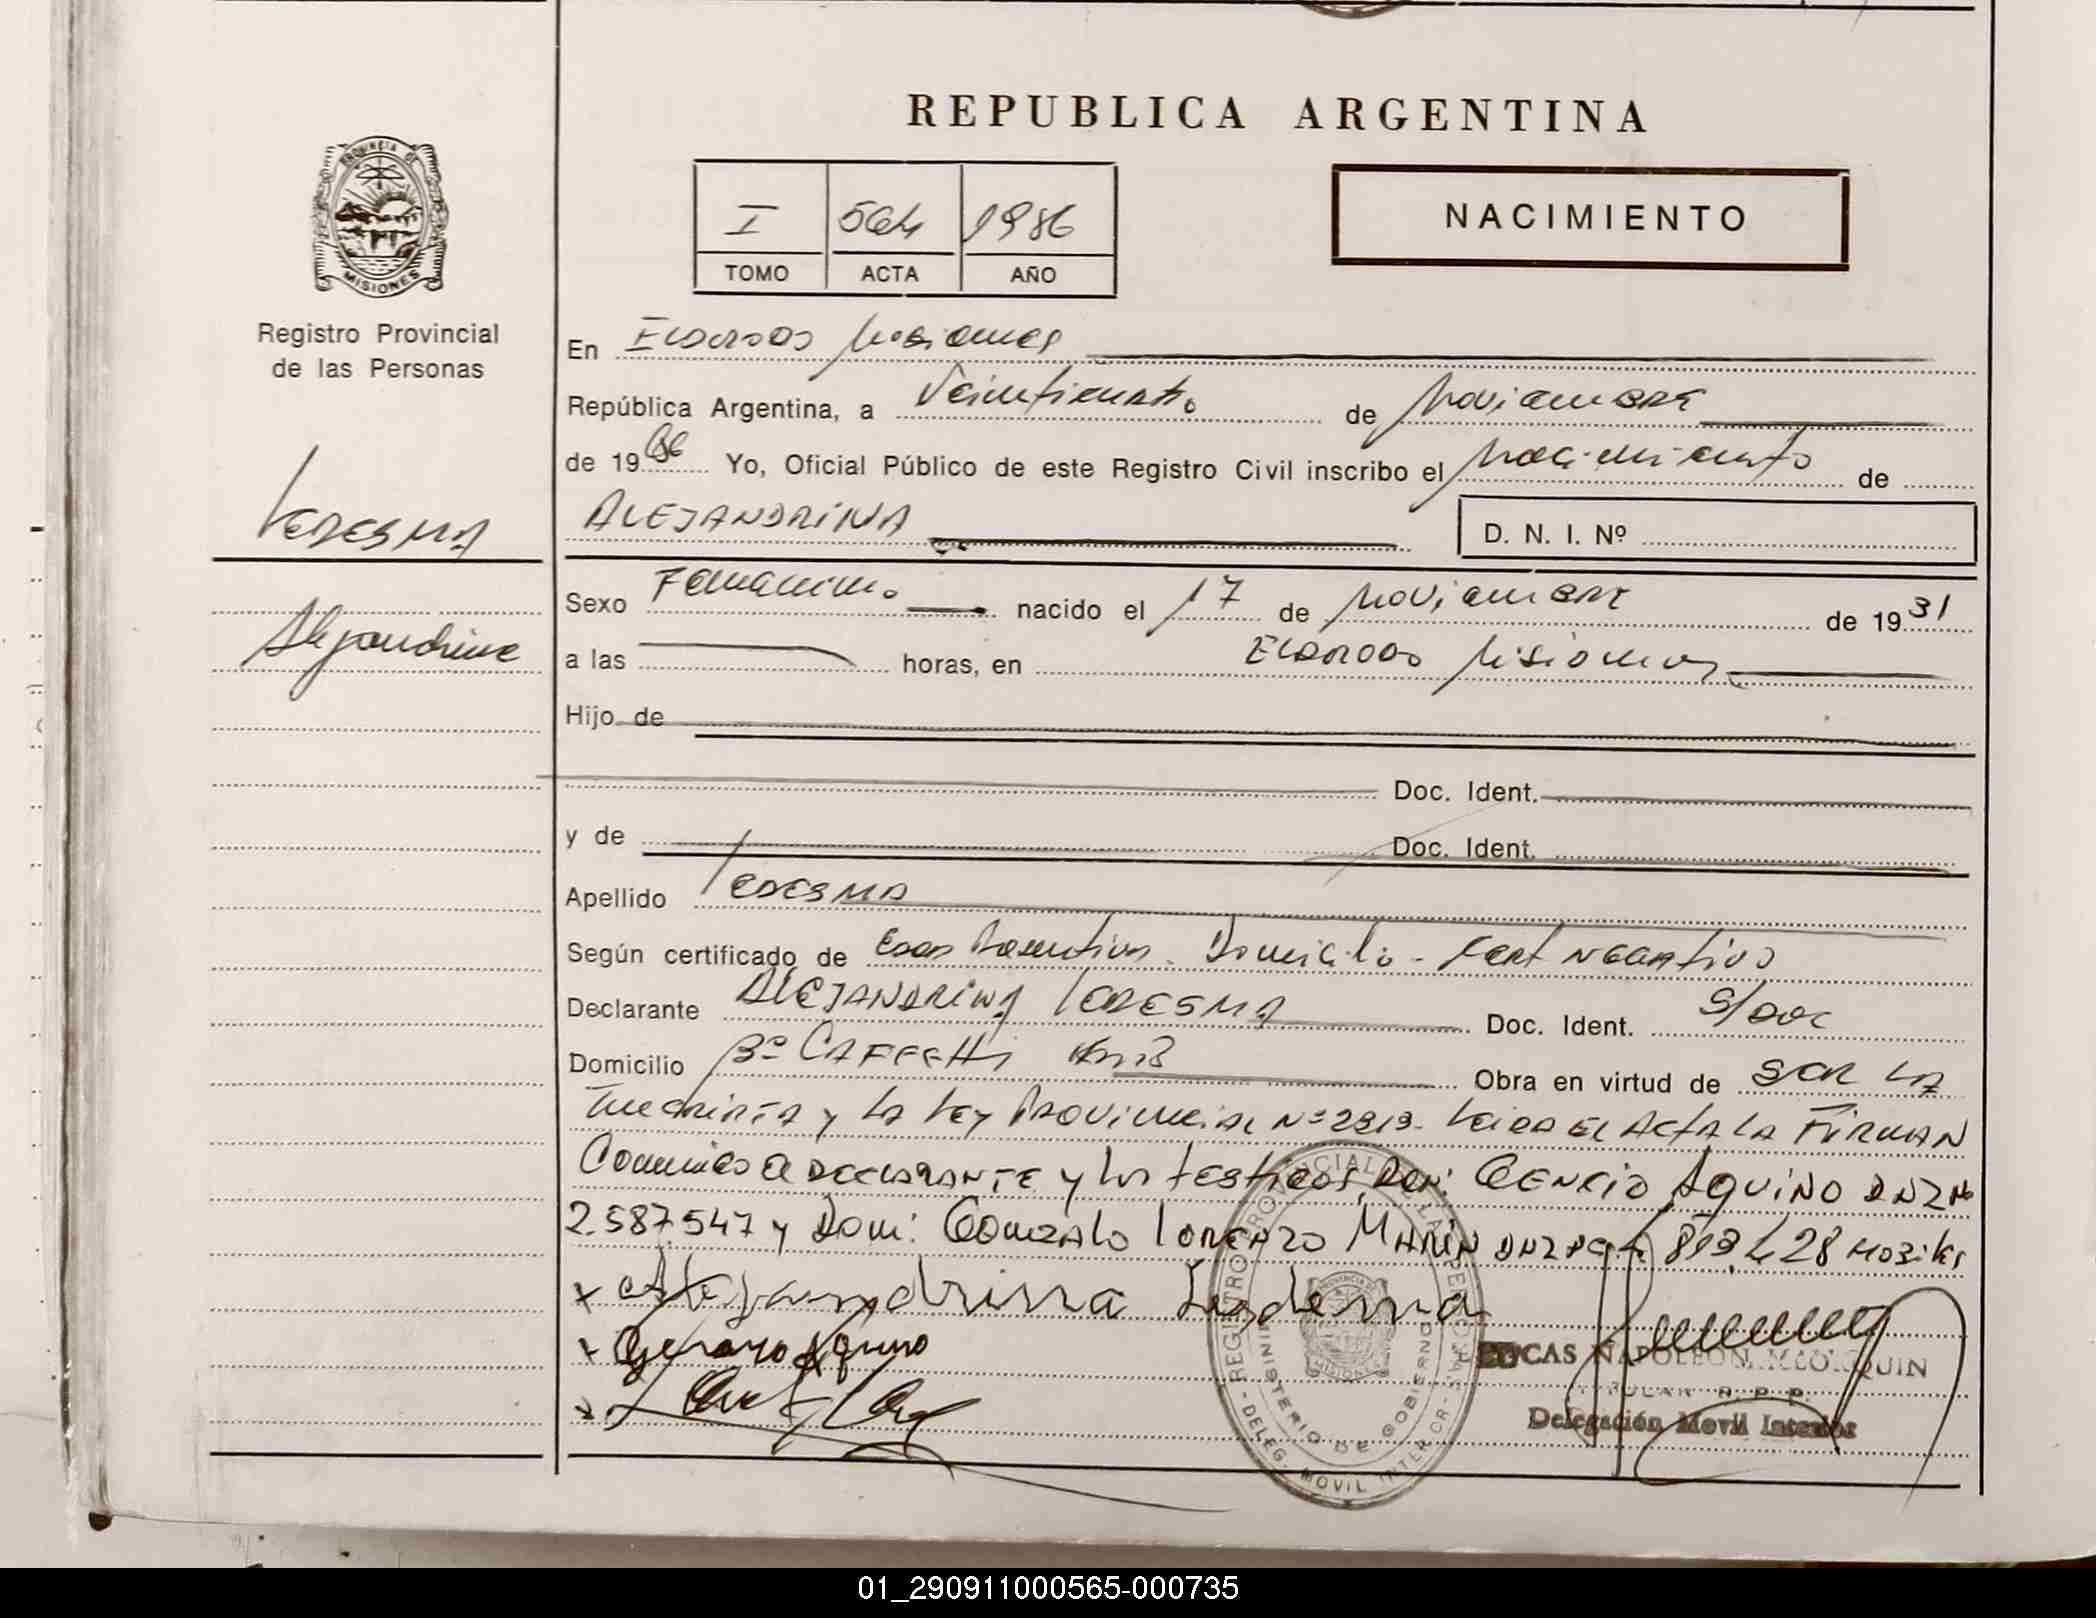 REPUBLICA ARGENTINA
PROVINCIA DE
MISIONES
Registro Provincial
de las Personas
I 564 1986
TOMO ACTA AÑO
NACIMIENTO
En Eldorado Misiones
República Argentina, a Veinticuatro de Noviembre
de 19 86 Yo, Oficial Público de este Registro Civil inscribo el Nacimiento de
LEDESMA
ALEJANDRINA
D. N. I. Nº
Alejandrina
Sexo Femenino nacido el 17 de Noviembre de 19 31
a las horas, en Eldorado Misiones
Hijo de
Doc. Ident.
y de Doc. Ident.
Apellido LEDESMA
Según certificado de Domicilio - Cert Negativo
Declarante ALEJANDRINA LEDESMA Doc. Ident. S/Doc
Domicilio Bº CAFFETTI Obra en virtud de SER LA
y LA Ley PROVINCIAL Nº 2213. Leida EL ACTA LA FIRMAN
Conmigo EL DECLARANTE y los testigos, Don: AQUINO DNI Nº
2.587.547 y Don: GONZALO LORENZO MARIN DNI
x Alejandrina Ledesma
x Aquino
x
REGISTRO PROVINCIAL DE LAS PERSONAS
MINISTERIO DE GOBIERNO
DELEG. MOVIL INTER
LUCAS NAPOLEON
TITULAR R. P. P.
Delegación Movil Interior
01_290911000565-000735